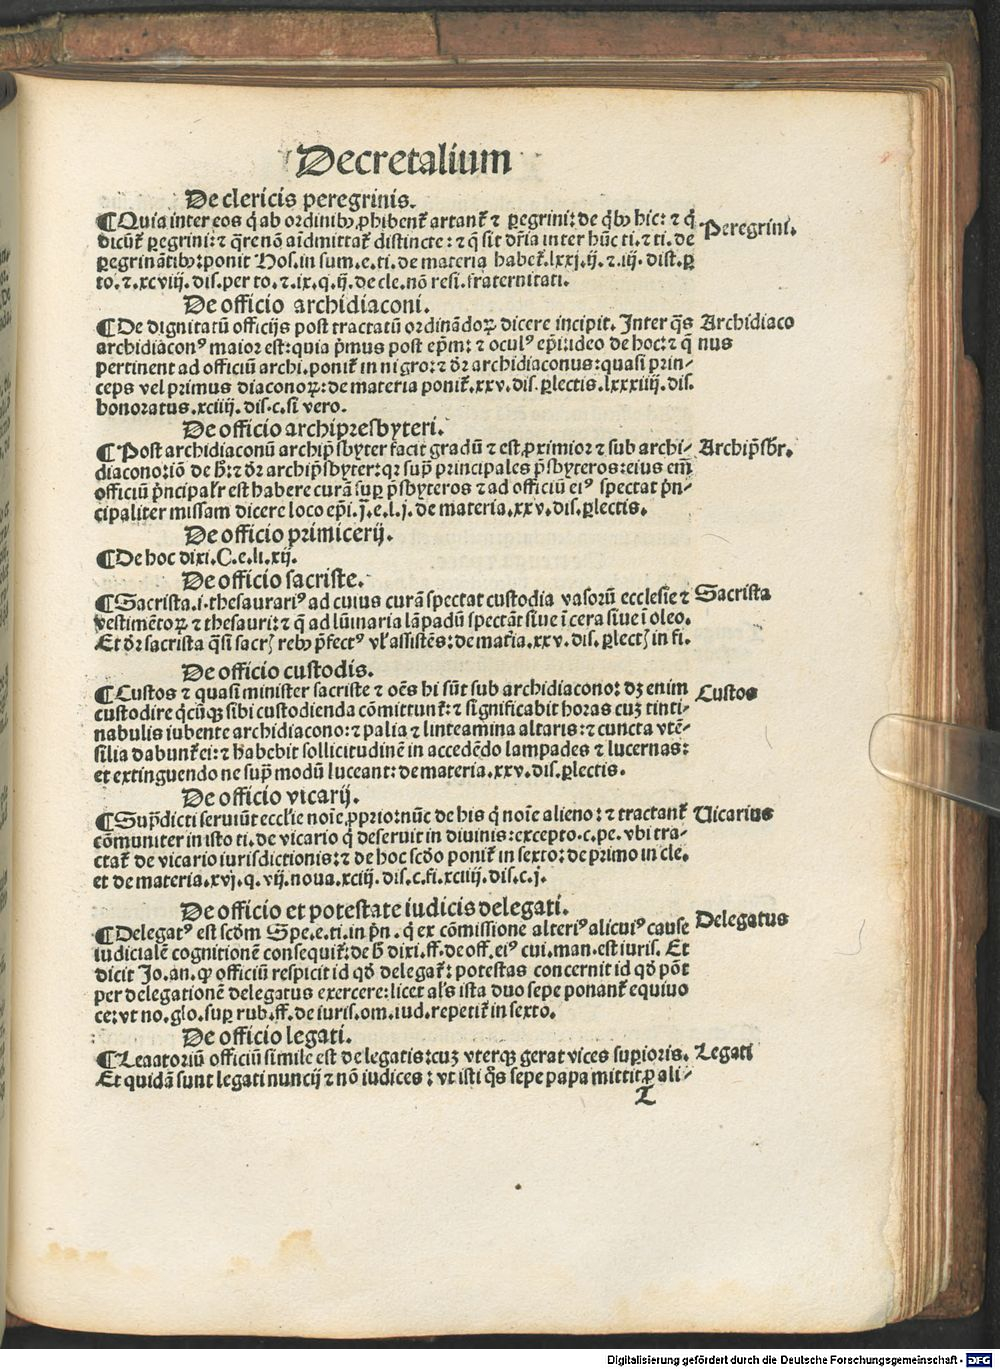 Decretalium
De clericis peregrinis.
¶Quia inter eos q̃ ab ordinibꝰ ꝓhibent᷑ artant᷑ ⁊ ꝑegrini: de q̃bꝰ hic: ⁊ q̃ Peregrini.
dicũt᷑ ꝑegrini: ⁊ q̃re nõ aĩdmittat᷑ distincte: ⁊ q̃ sit dr̃ia inter hũc ti. ⁊ ti. de
ꝑegrinãtibꝰ: ponit Hos. in sum. e. ti. de materia habet᷑. lxxj. ij. ⁊. iij. dist. ꝑ
to. ⁊. xcviij. dis. per to. ⁊. ix. q. ij. de cle. nõ resi. fraternitati.
De officio archidiaconi.
¶De dignitatũ officijs post tractatũ ordinãdoꝝ dicere incipit. Inter q̃s Archidiaco
archidiaconꝰ maior est: quia p̃mus post ep̃m: ⁊ oculꝰ ep̃i: ideo de hoc: ⁊ q̃ nus
pertinent ad officiũ archi. ponit᷑ in nigro: ⁊ dr̃ archidiaconus: quasi prin⸗
ceps vel primus diaconoꝝ: de materia ponit᷑. xxv. dis. ꝑlectis. lxxxiiij. dis.
honoratus. xciiij. dis. c. si vero.
De officio archipresbyteri.
¶Post archidiaconũ archip̃sbyter facit gradũ ⁊ est ꝓximior ⁊ sub archi⸗ Archip̃sbr̃.
diacono: iõ de h̃: ⁊ dr̃ archip̃sbyter: qꝛ suꝑ principales p̃sbyteros: eius em̃
officiũ p̃ncipal'r est habere curã suꝑ p̃sbyteros ⁊ ad officiũ eiꝰ spectat p̃n⸗
cipaliter missam dicere loco ep̃i. j. e. l. j. de materia. xxv. dis. ꝑlectis.
De officio primicerij.
¶De hoc dixi. C. e. li. xij.
De officio sacriste.
¶Sacrista. i. thesaurariꝰ ad cuius curã spectat custodia vasorũ ecclesie ⁊ Sacrista
vestimẽtoꝝ ⁊ thesauri: ⁊ q̃ ad lũinaria lãpadũ spectãt siue ĩ cera siue ĩ oleo.
Et dr̃ sacrista q̃si sacrꝭ rebꝰ p̃fectꝰ vl' assistẽs: de mat̃ia. xxv. dis. ꝑlectꝭ in fi.
De officio custodis.
¶Custos ⁊ quasi minister sacriste ⁊ oẽs hi sũt sub archidiacono: dꝫ enim Custos
custodire q̃cũqꝫ sibi custodienda cõmittunt᷑: ⁊ significabit horas cuꝫ tinti⸗
nabulis iubente archidiacono: ⁊ palia ⁊ linteamina altaris: ⁊ cuncta vtẽ⸗
silia dabunt᷑ ei: ⁊ habebit sollicitudinẽ in accedẽdo lampades ⁊ lucernas:
et extinguendo ne supᷓ modũ luceant: de materia. xxv. dis. ꝑlectis.
De officio vicarij.
¶Sup̃dicti seruiũt eccl'ie noĩe ꝓprio: nũc de his q̃ noĩe alieno: ⁊ tractant᷑ Vicarius
cõmuniter in isto ti. de vicario q̃ deseruit in diuinis: excepto. c. pe. vbi tra⸗
ctat᷑ de vicario iurisdictionis: ⁊ de hoc scd̃o ponit᷑ in sexto: de primo in cle.
et de materia. xvj. q. vij. noua. xciij. dis. c. fi. xciiij. dis. c. j.
De officio et potestate iudicis delegati.
¶Delegatꝰ est scd̃m Spe. e. ti. in p̃n. q̃ ex cõmissione alteriꝰ alicuiꝰ cause Delegatus
iudicialẽ cognitionẽ consequit᷑: de h̃ dixi. ff. de off. eiꝰ cui. man. est iuris. Et
dicit Jo. an. ꝙ officiũ respicit id qd̃ delegat᷑: potestas concernit id qd̃ põt
per delegationẽ delegatus exercere: licet al's ista duo sepe ponant᷑ equiuo
ce: vt no. glo. suꝑ rub. ff. de iuris. om. iud. repetit᷑ in sexto.
De officio legati.
¶Leaatoriũ officiũ simile est delegatis: cuꝫ vterqꝫ gerat vices suꝑioris. Legati
Et quidã sunt legati nuncij ⁊ nõ iudices: vt isti q̃s sepe papa mittit ꝑ ali⸗
L
Digitalisierung gefördert durch die Deutsche Forschungsgemeinschaft - DFG